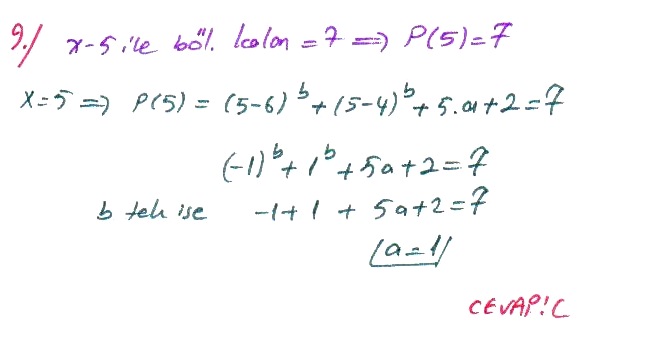 9./ x-5 ile böl. kalan = 7 ⟹ P(5)=7
x=5 ⟹ P(5) = (5-6)^b + (5-4)^b + 5.a+2=7
(-1)^b + 1^b + 5a+2=7
b tek ise -1+1 + 5a+2=7
/a=1/
CEVAP: C